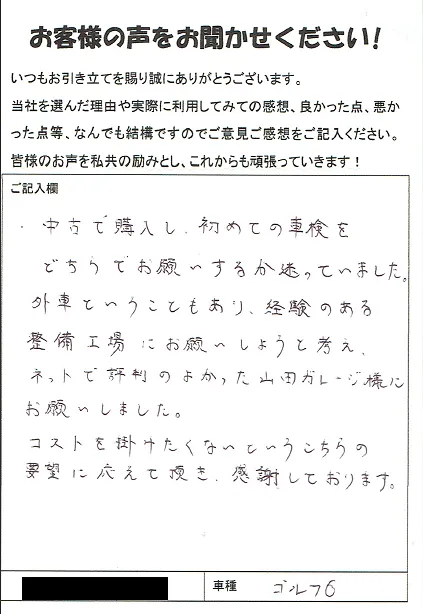 お客様の声をお聞かせください!
いつもお引き立てを賜り誠にありがとうございます。
当社を選んだ理由や実際に利用してみての感想、良かった点、悪か
った点等、なんでも結構ですのでご意見ご感想をご記入ください。
皆様のお声を私共の励みとし、これからも頑張っていきます！
ご記入欄
・中古で購入し、初めての車検を
どちらでお願いするか迷っていました。
外車ということもあり、経験のある
整備工場にお願いしようと考え、
ネットで評判のよかった山田ガレージ様に
お願いしました。
コストを掛けたくないというこちらの
要望に応えて頂き、感謝しております。
車種 ゴルフ6